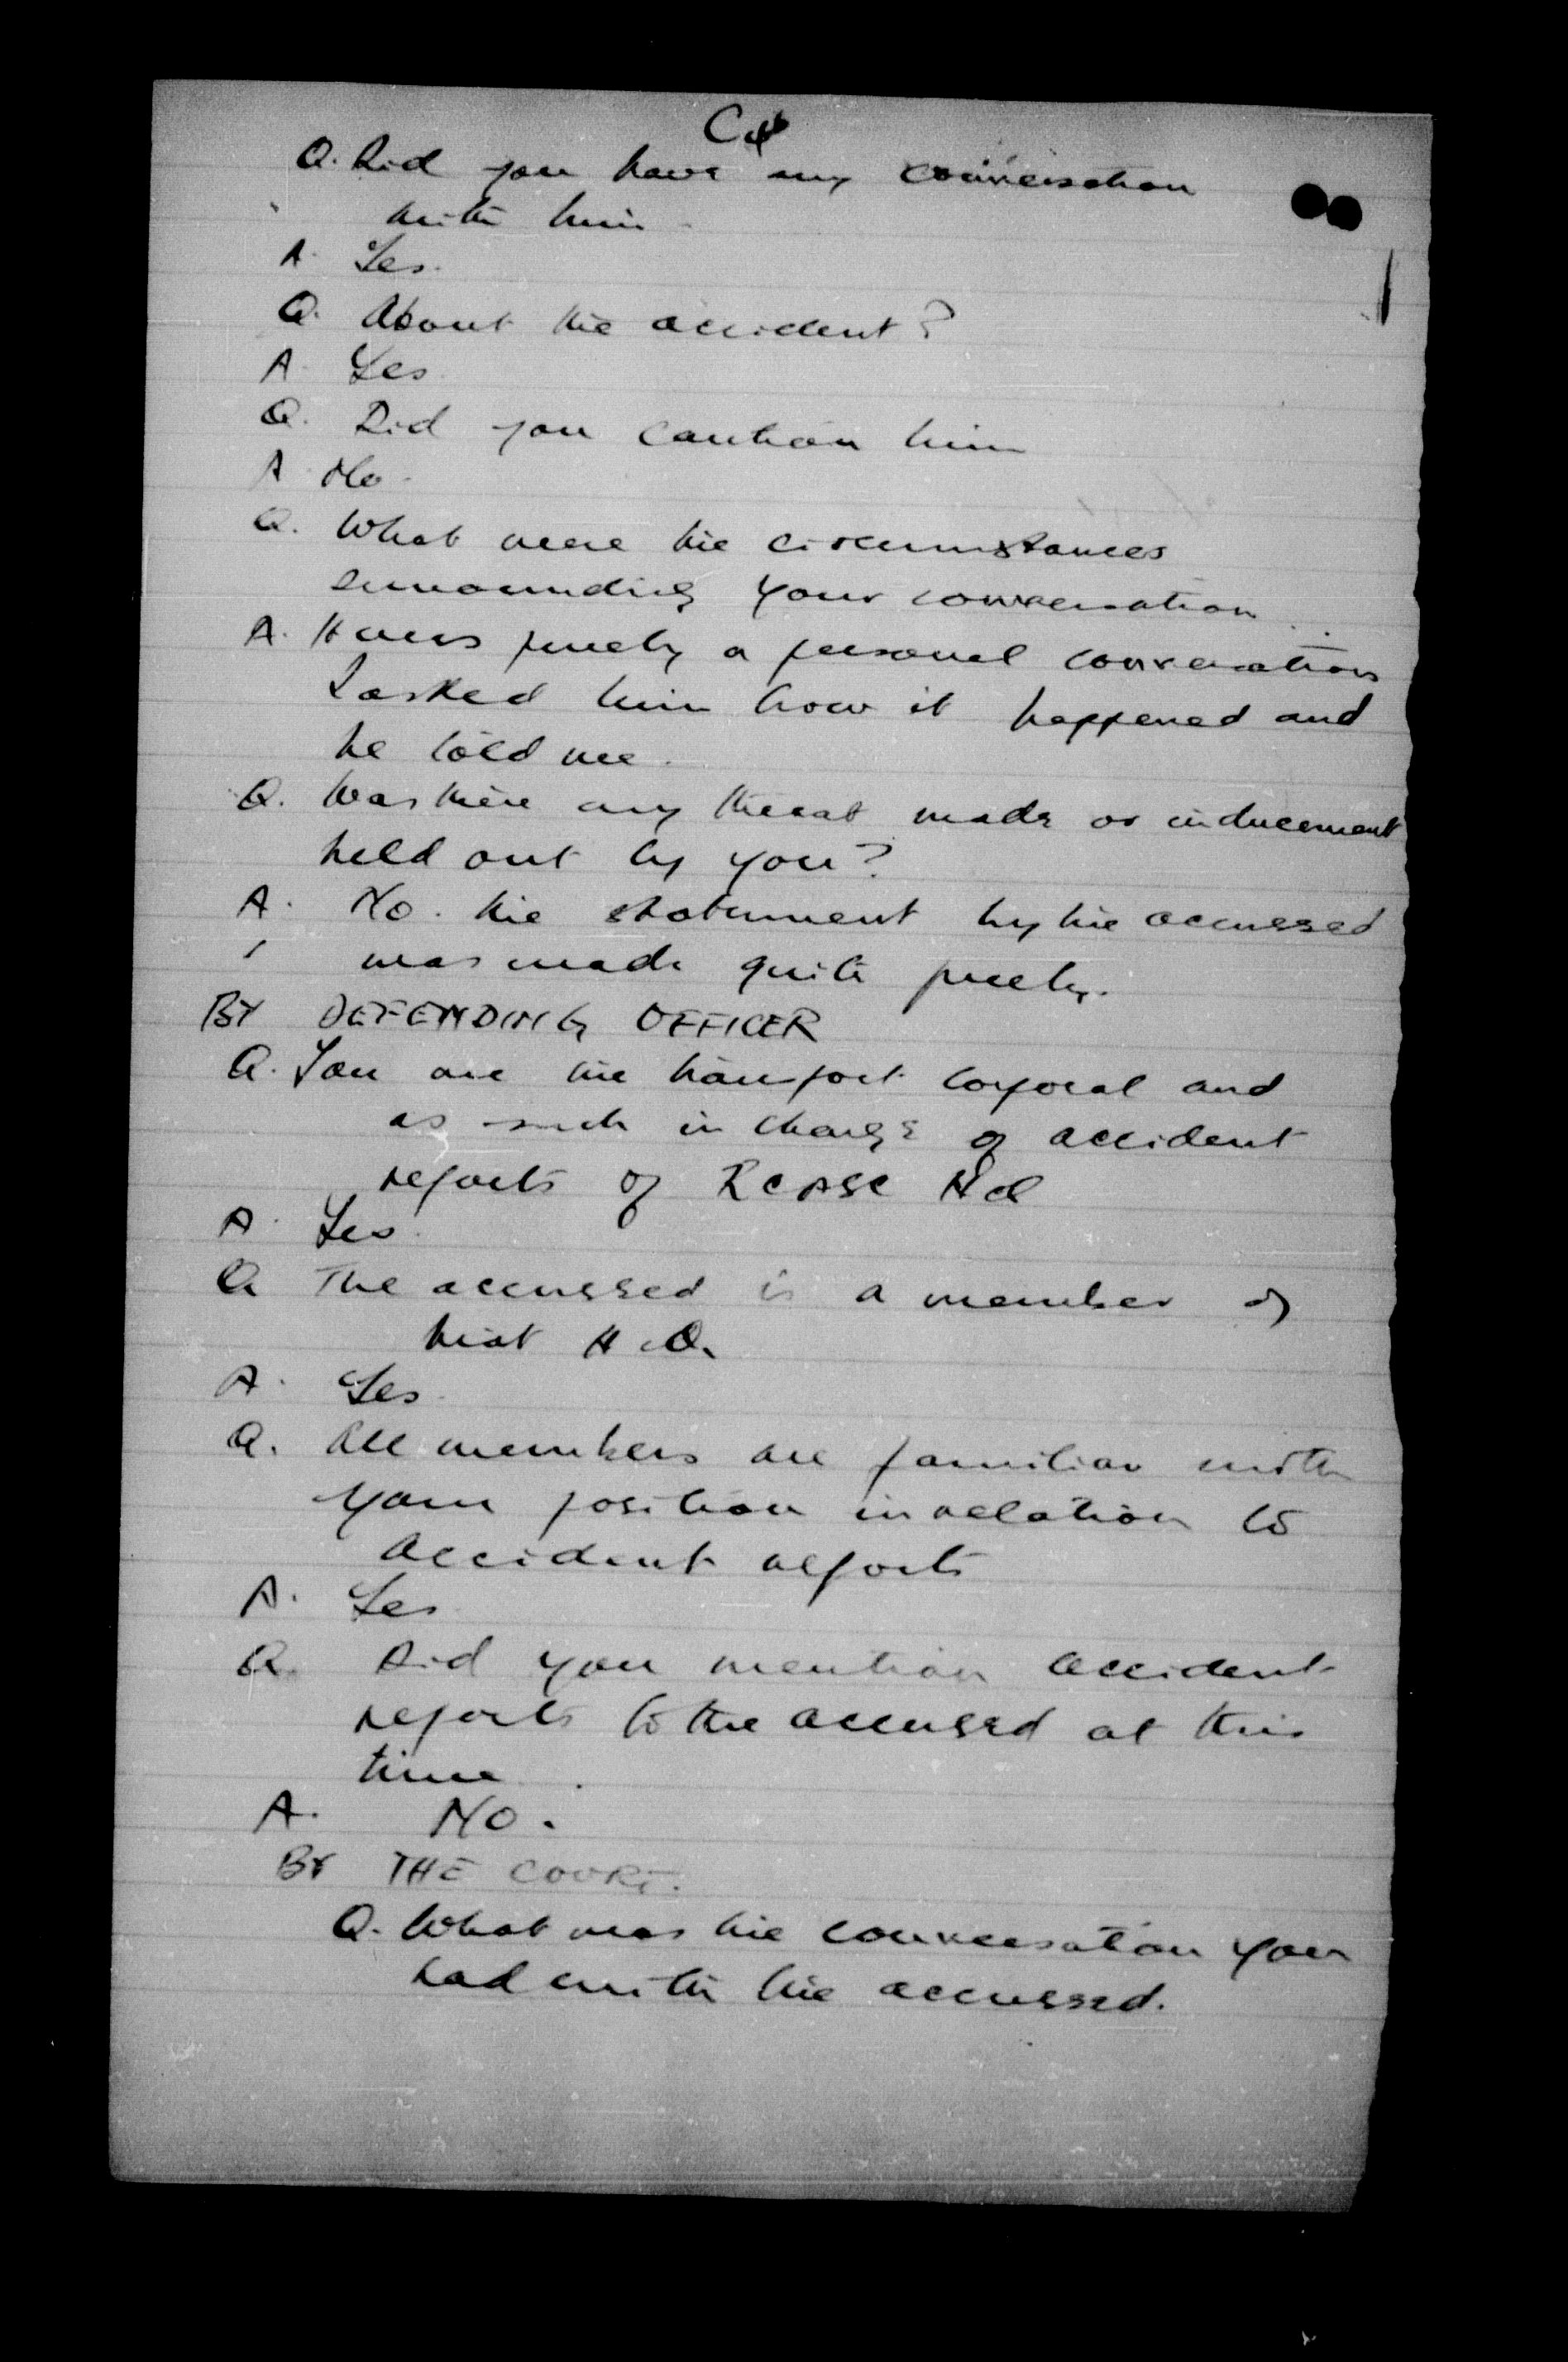 Q. Did you have any conversation
with him.
A. Yes.
Q. About the accident?
A. Yes
Q. Did you caution him
A No.
Q. What were the circumstances
surrounding your conversation
A. It was purely a personal conversation
I asked him how it happened and
he told me.
Q. Was there any threat made or inducement
held out by you?
A. No. the statement by the accussed
was made quite freely.
BY DEFENDING OFFICER
Q. You are the transport corporal and
as such in charge of accident
reports of RCASC HQ
A. Yes.
Q The accussed is a member of
that H.Q.
A. Yes.
Q. All members are familiar with
your position in relation to
accident reports
A. Yes
Q. Did you mention accident
reports to the accused at this
time.
A. No.
BY THE COURT.
Q. What was the conversation you
had with the accussed.